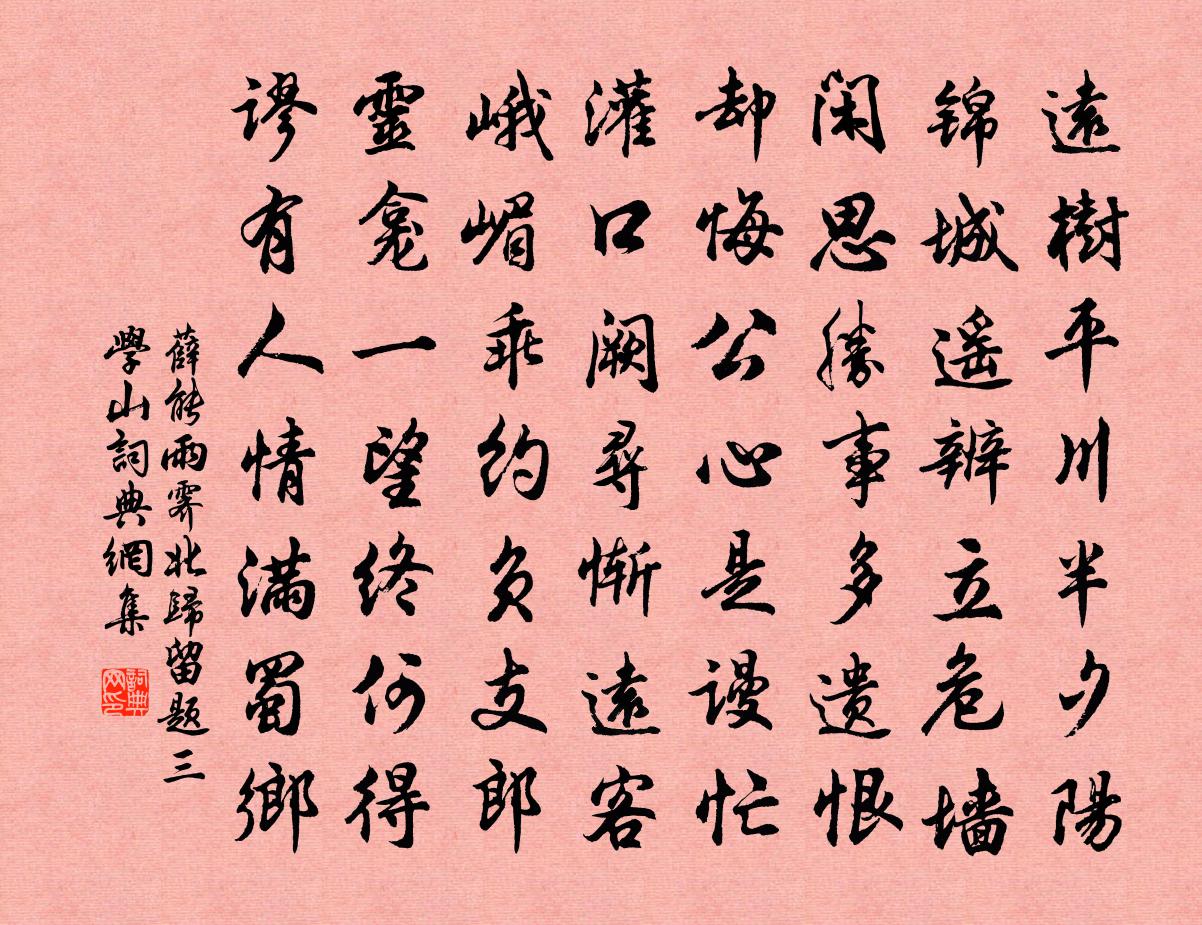 遠樹平川半夕陽
锦城遥辨立危墙
閑思勝事多遗恨
却悔公心是谩忙
灌口阙尋慚遠客
峨嵋乖约负支郎
靈龕一望终何得
谬有人情满蜀鄉
薛能雨霁北歸留题三
學山詞典網集
詞典网印